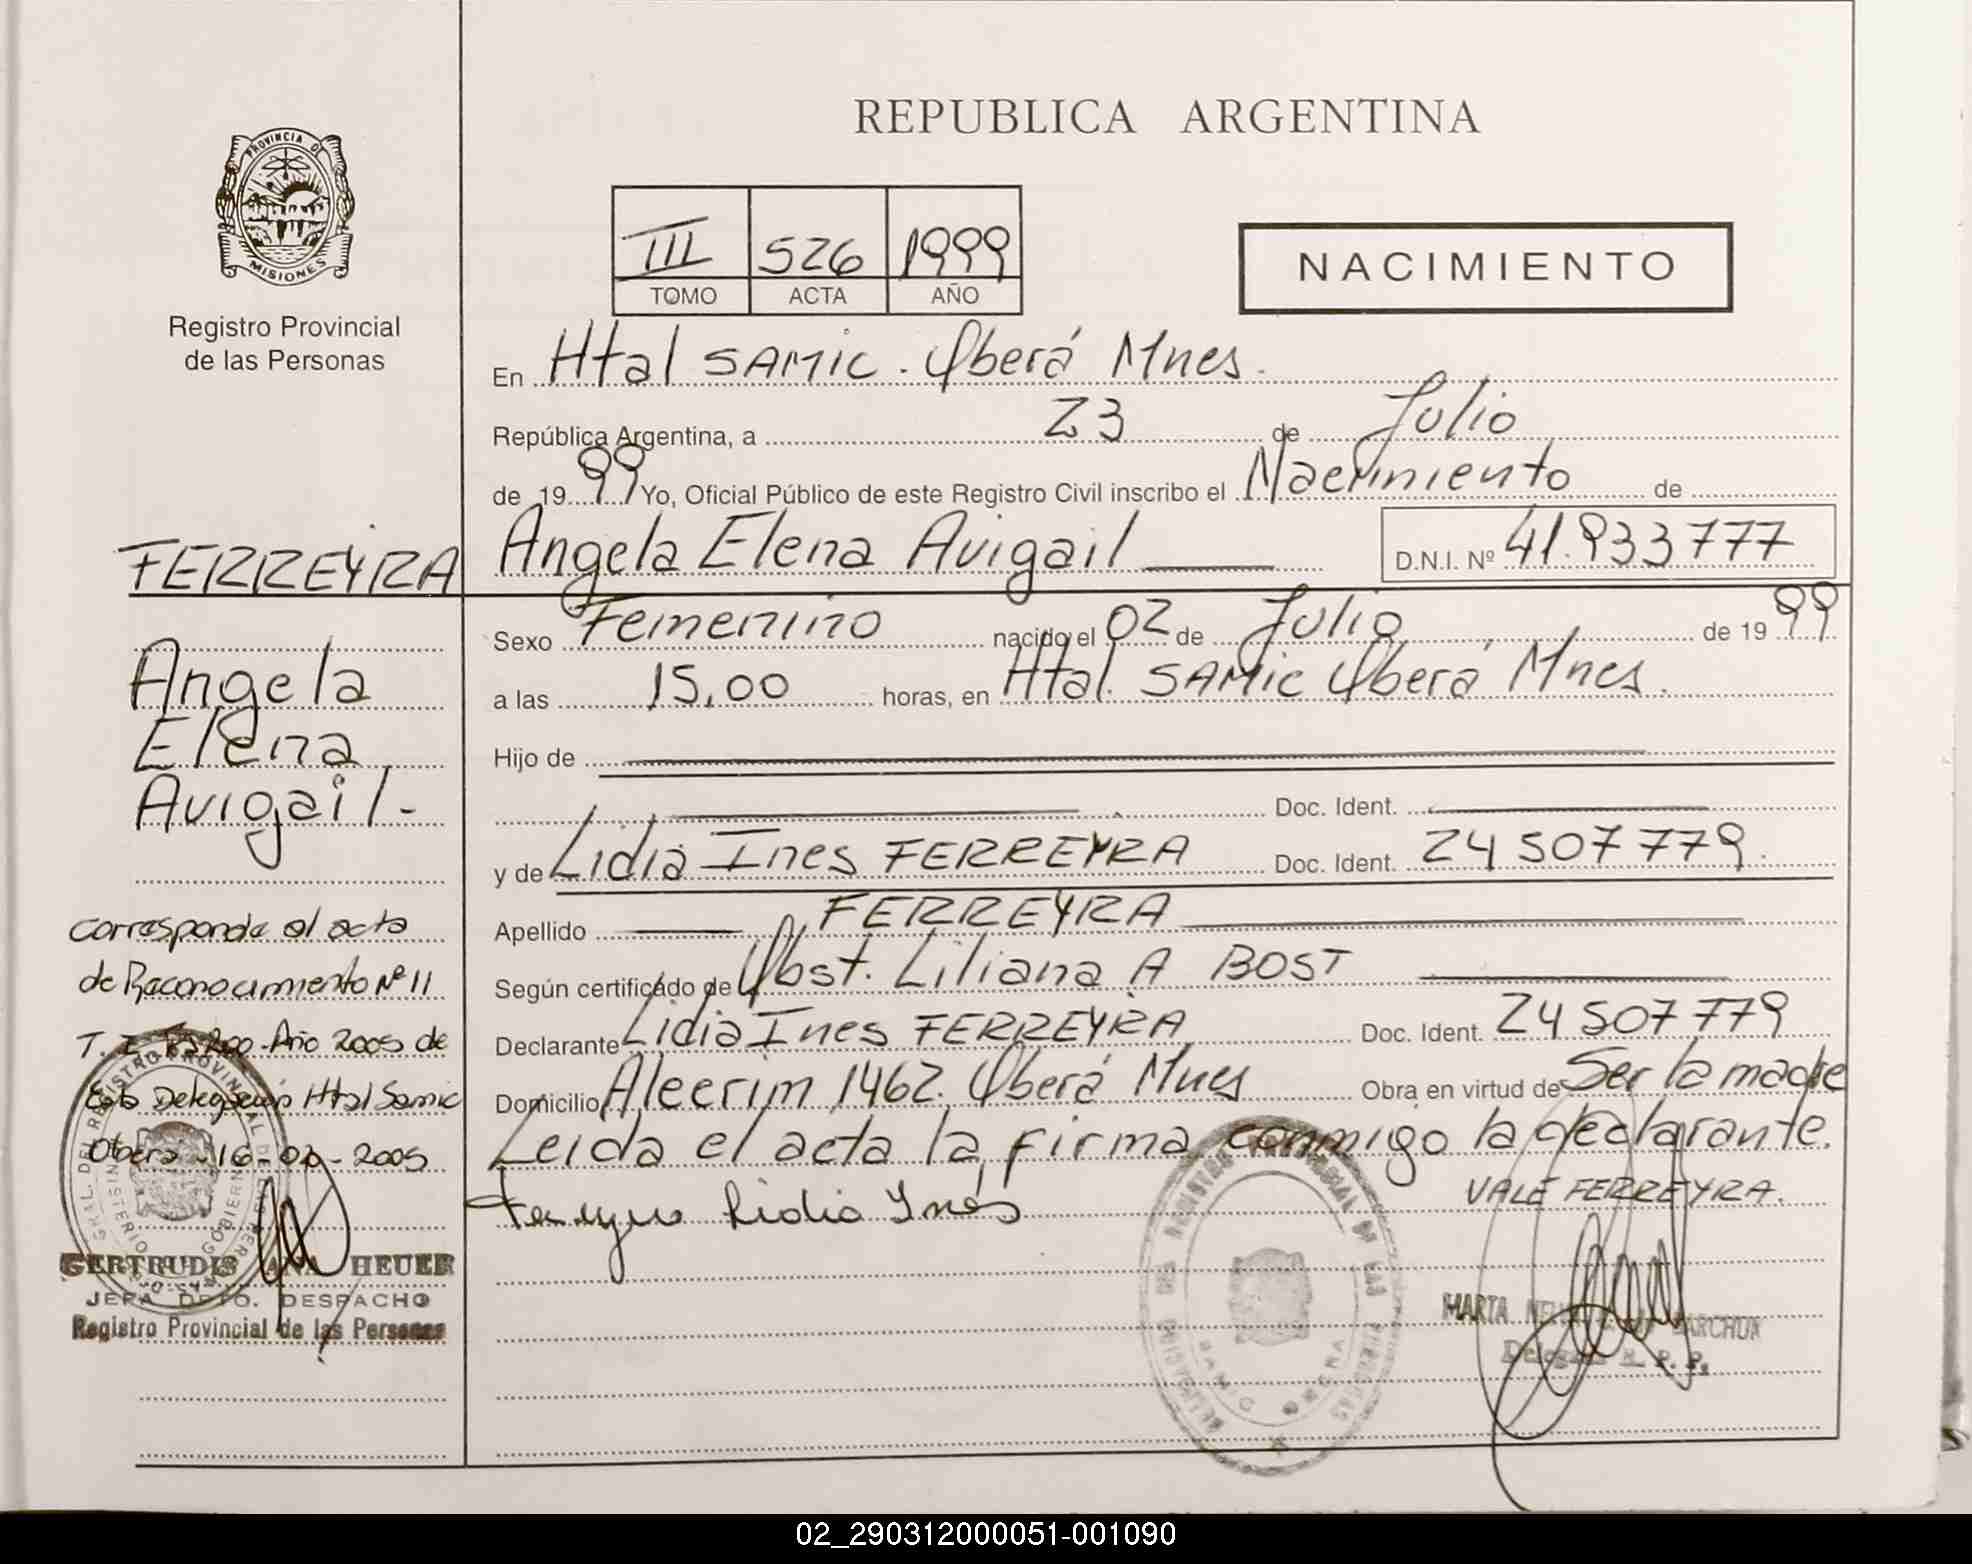 REPUBLICA ARGENTINA
PROVINCIA DE
MISIONES
Registro Provincial
de las Personas
III 526 1999
TOMO ACTA AÑO
NACIMIENTO
En Htal SAMIC. Oberá Mnes.
República Argentina, a 23 de Julio
de 1999 Yo, Oficial Público de este Registro Civil inscribo el Nacimiento de
FERREYRA Angela Elena Avigail D.N.I. Nº 41.933777
Sexo Femenino nacido el 02 de Julio de 1999
a las 15,00 horas, en Htal. SAMIC Oberá Mnes.
Hijo de
Doc. Ident.
y de Lidia Ines FERREYRA Doc. Ident. 24 507 779.
Apellido FERREYRA
Según certificado de Obst. Liliana A BOST
Declarante Lidia Ines FERREYRA Doc. Ident. 24 507 779
Domicilio Alecrim 1462. Oberá Mnes Obra en virtud de Ser la madre
Leida el acta la firma conmigo la declarante.
VALE FERREYRA.
Lidia Inés
MARTA BARCHUK
R. P. P.
DELEGACION DEL REGISTRO PROVINCIAL DE LAS PERSONAS
SAMIC OBERA
Angela
Elena
Avigail-
Corresponde al acta
de Reconocimiento Nº 11
T. I Año 2005 de
Esta Delegación Htal Samic
Oberá - 16 - 2005
GRAL. DEL REGISTRO PROVINCIAL DE LAS PERSONAS
MINISTERIO GOBIERNO
GERTRUDIS ANA HEUER
JEFA DPTO. DESPACHO
Registro Provincial de las Personas
02_290312000051-001090